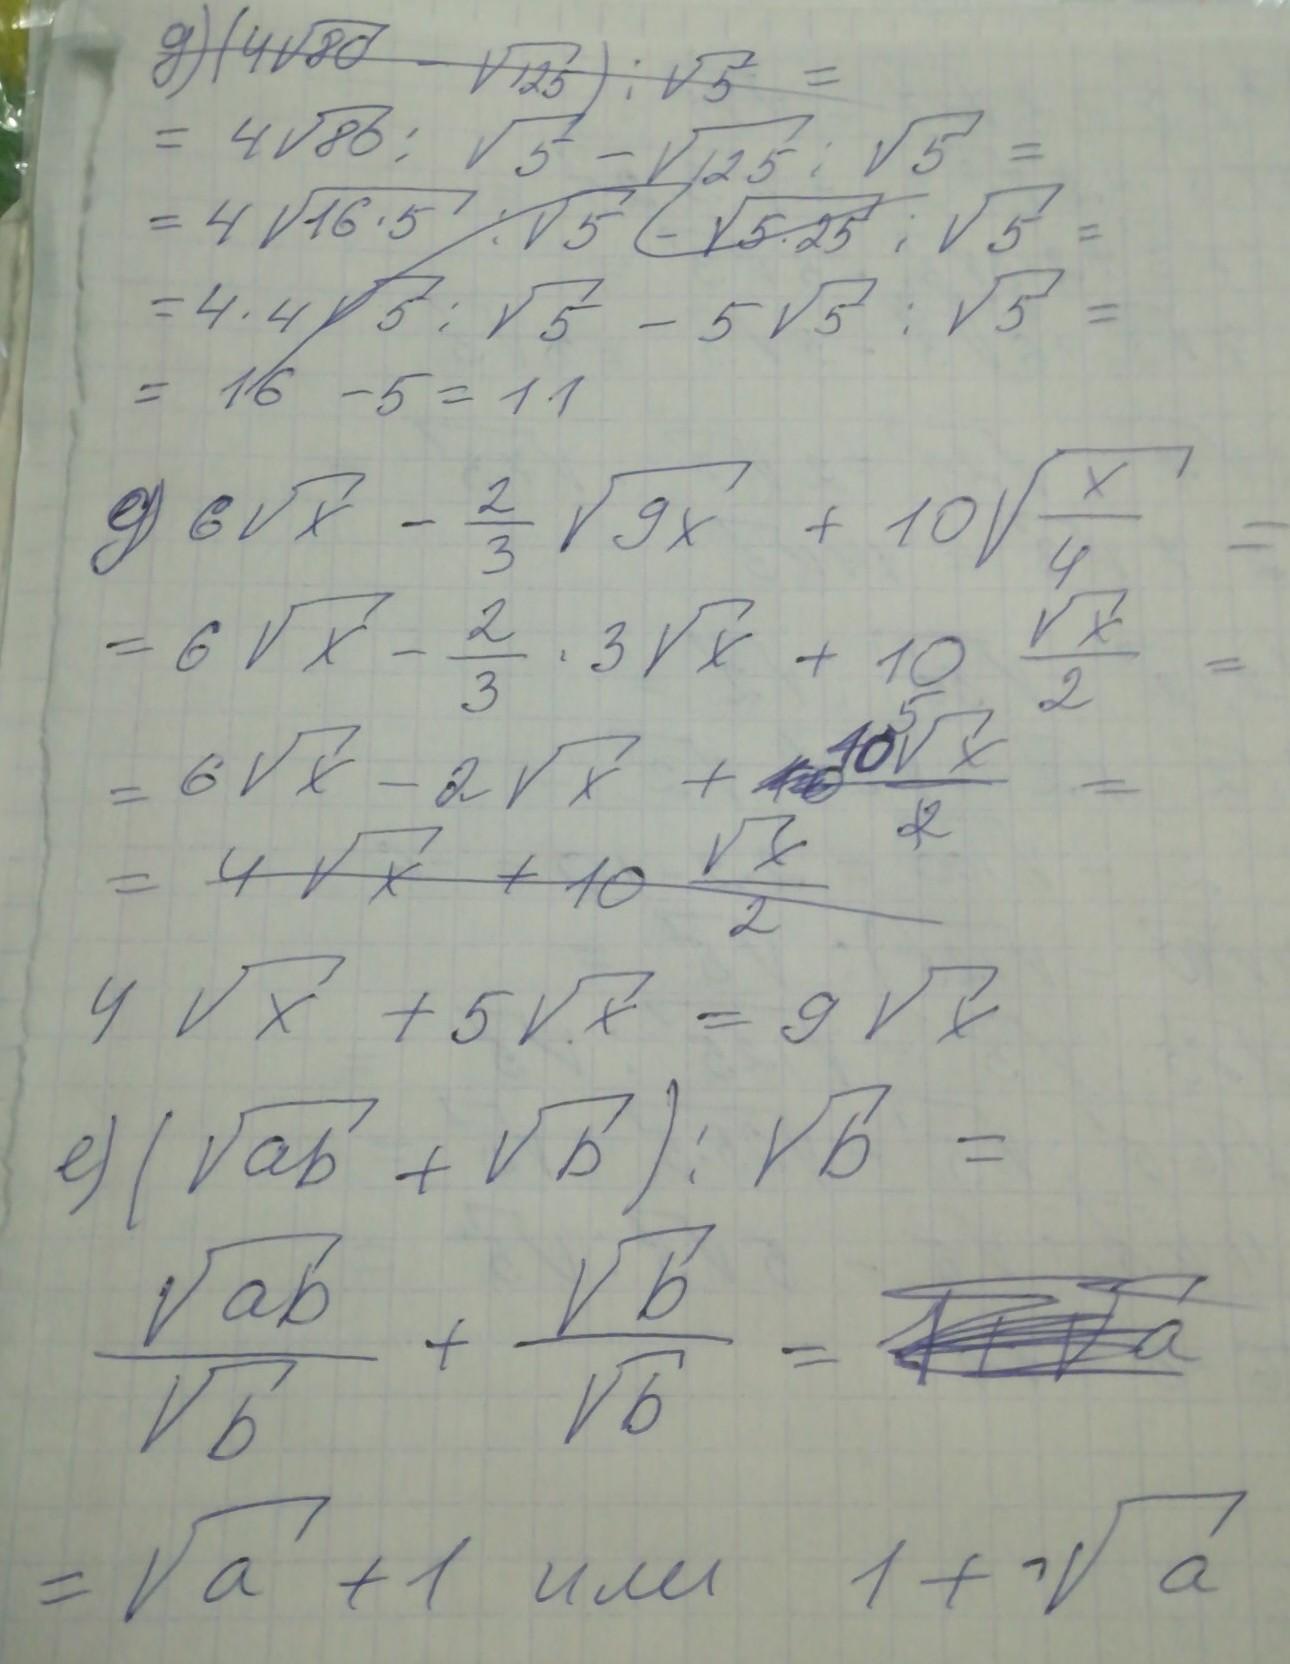 g) (4√80 - √125) : √5 =
= 4√80 : √5 - √125 : √5 =
= 4√16·5 : √5 - √5·25 : √5 =
= 4·4√5 : √5 - 5√5 : √5 =
= 16 - 5 = 11
g) 6√x - 2/3 √9x + 10√x/4 =
= 6√x - 2/3 · 3√x + 10 √x/2 =
= 6√x - 2√x + 10√x/2 5 =
= 4√x + 10 √x/2
4√x + 5√x = 9√x
e) (√ab + √b) : √b =
√ab/√b + √b/√b =
= √a + 1 или 1 + √a